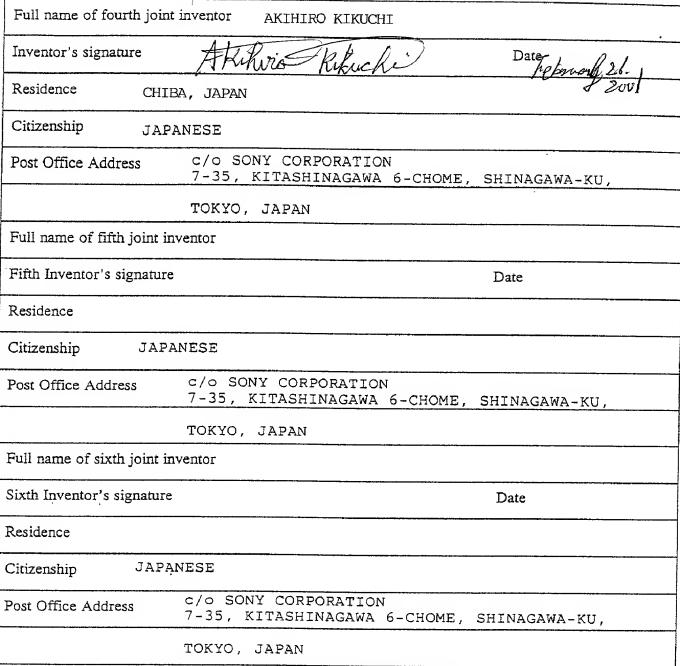 Full name of fourth joint inventor AKIHIRO KIKUCHI
Inventor's signature Akihiro Kikuchi Date February 26. 2001
Residence CHIBA, JAPAN
Citizenship JAPANESE
Post Office Address c/o SONY CORPORATION
7-35, KITASHINAGAWA 6-CHOME, SHINAGAWA-KU,
TOKYO, JAPAN
Full name of fifth joint inventor
Fifth Inventor's signature Date
Residence
Citizenship JAPANESE
Post Office Address c/o SONY CORPORATION
7-35, KITASHINAGAWA 6-CHOME, SHINAGAWA-KU,
TOKYO, JAPAN
Full name of sixth joint inventor
Sixth Inventor's signature Date
Residence
Citizenship JAPANESE
Post Office Address c/o SONY CORPORATION
7-35, KITASHINAGAWA 6-CHOME, SHINAGAWA-KU,
TOKYO, JAPAN